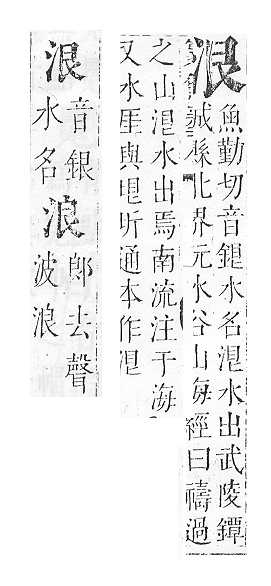 泿
魚勤切音銀水名泿水出武陵鐔
城縣北界元水谷山海經曰禱過
之山泿水出焉南流注于海
又水厓與垠圻通本作泿
泿
音銀
水名
浪
郎去聲
波浪